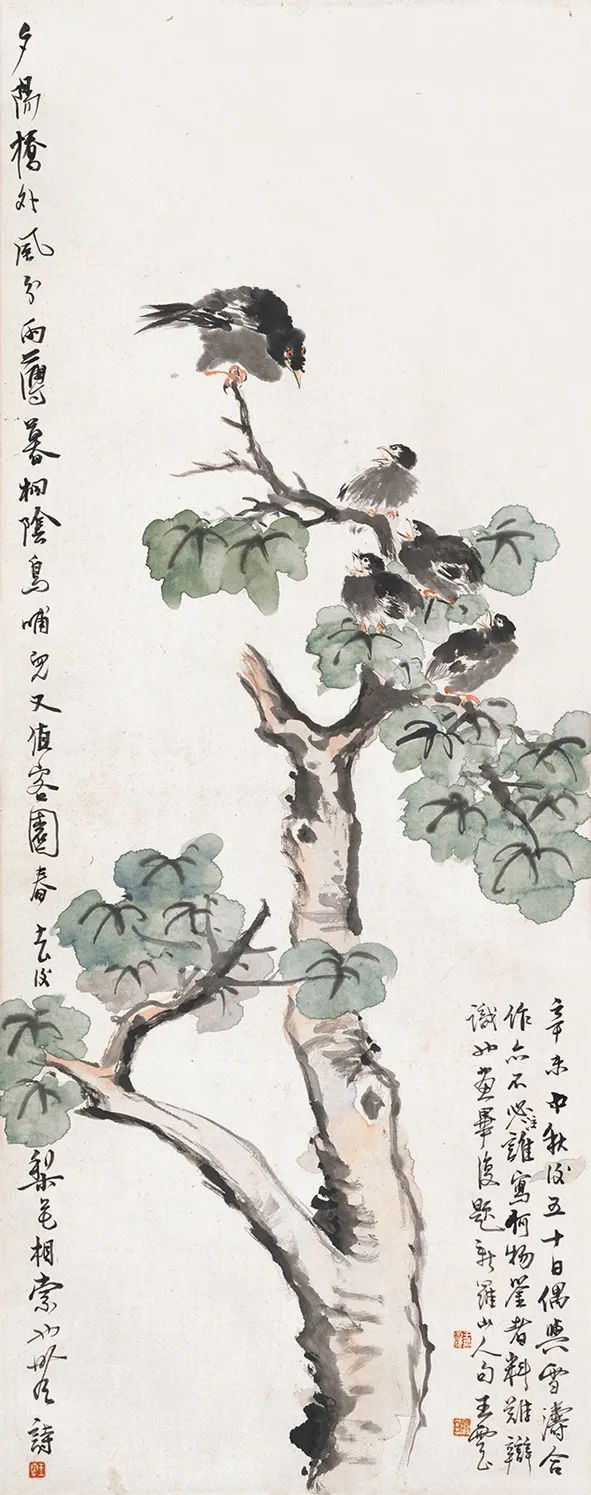 辛未中秋後五十日偶與雪濤合
作亦不必註誰寫何物鑒者料難辯
識也畫畢復題新羅山人句王雲
夕陽橋外風分雨薄暮桐陰鳥哺兒又值客園春去後
梨花相索也無詩